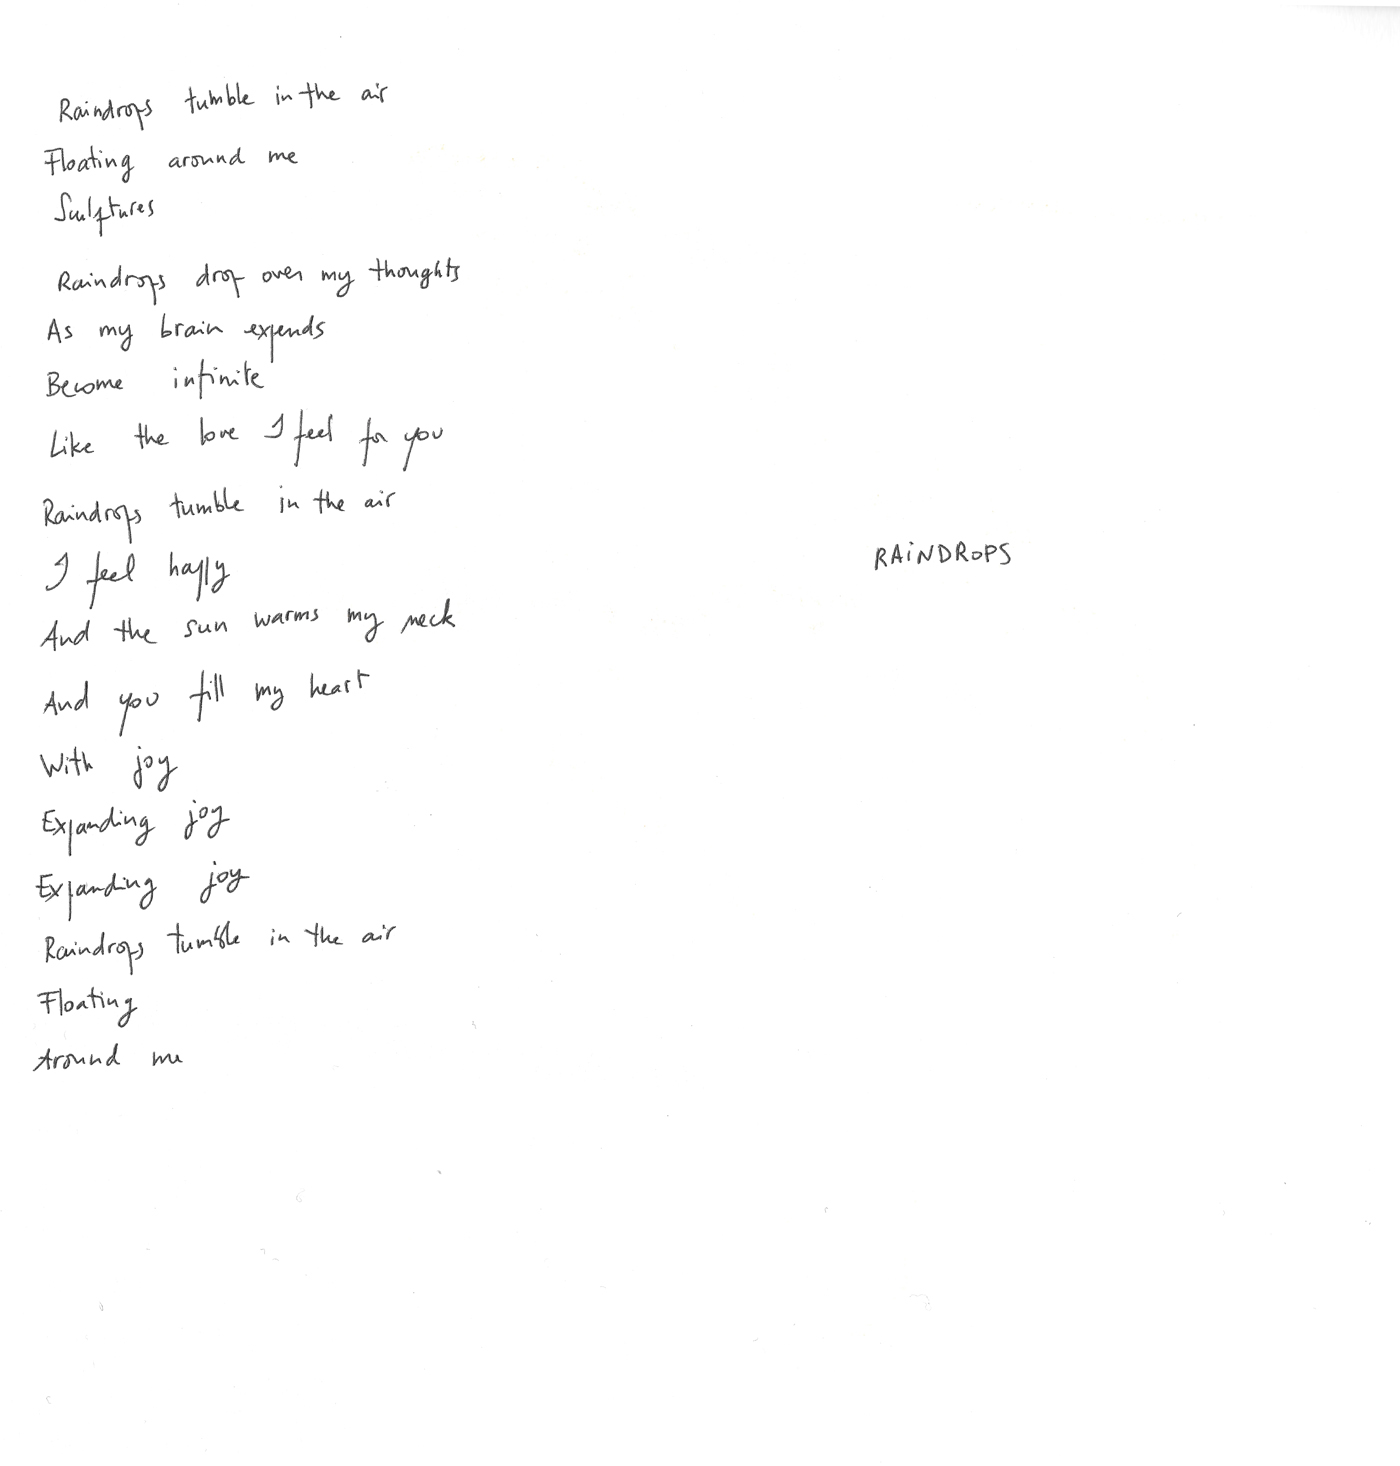 Raindrops tumble in the air
Floating around me
Sculptures
Raindrops drop over my thoughts
As my brain expends
Become infinite
Like the love I feel for you
Raindrops tumble in the air
I feel happy
And the sun warms my neck
And you fill my heart
With joy
Expanding joy
Expanding joy
Raindrops tumble in the air
Floating
Around me
RAiNDROPS